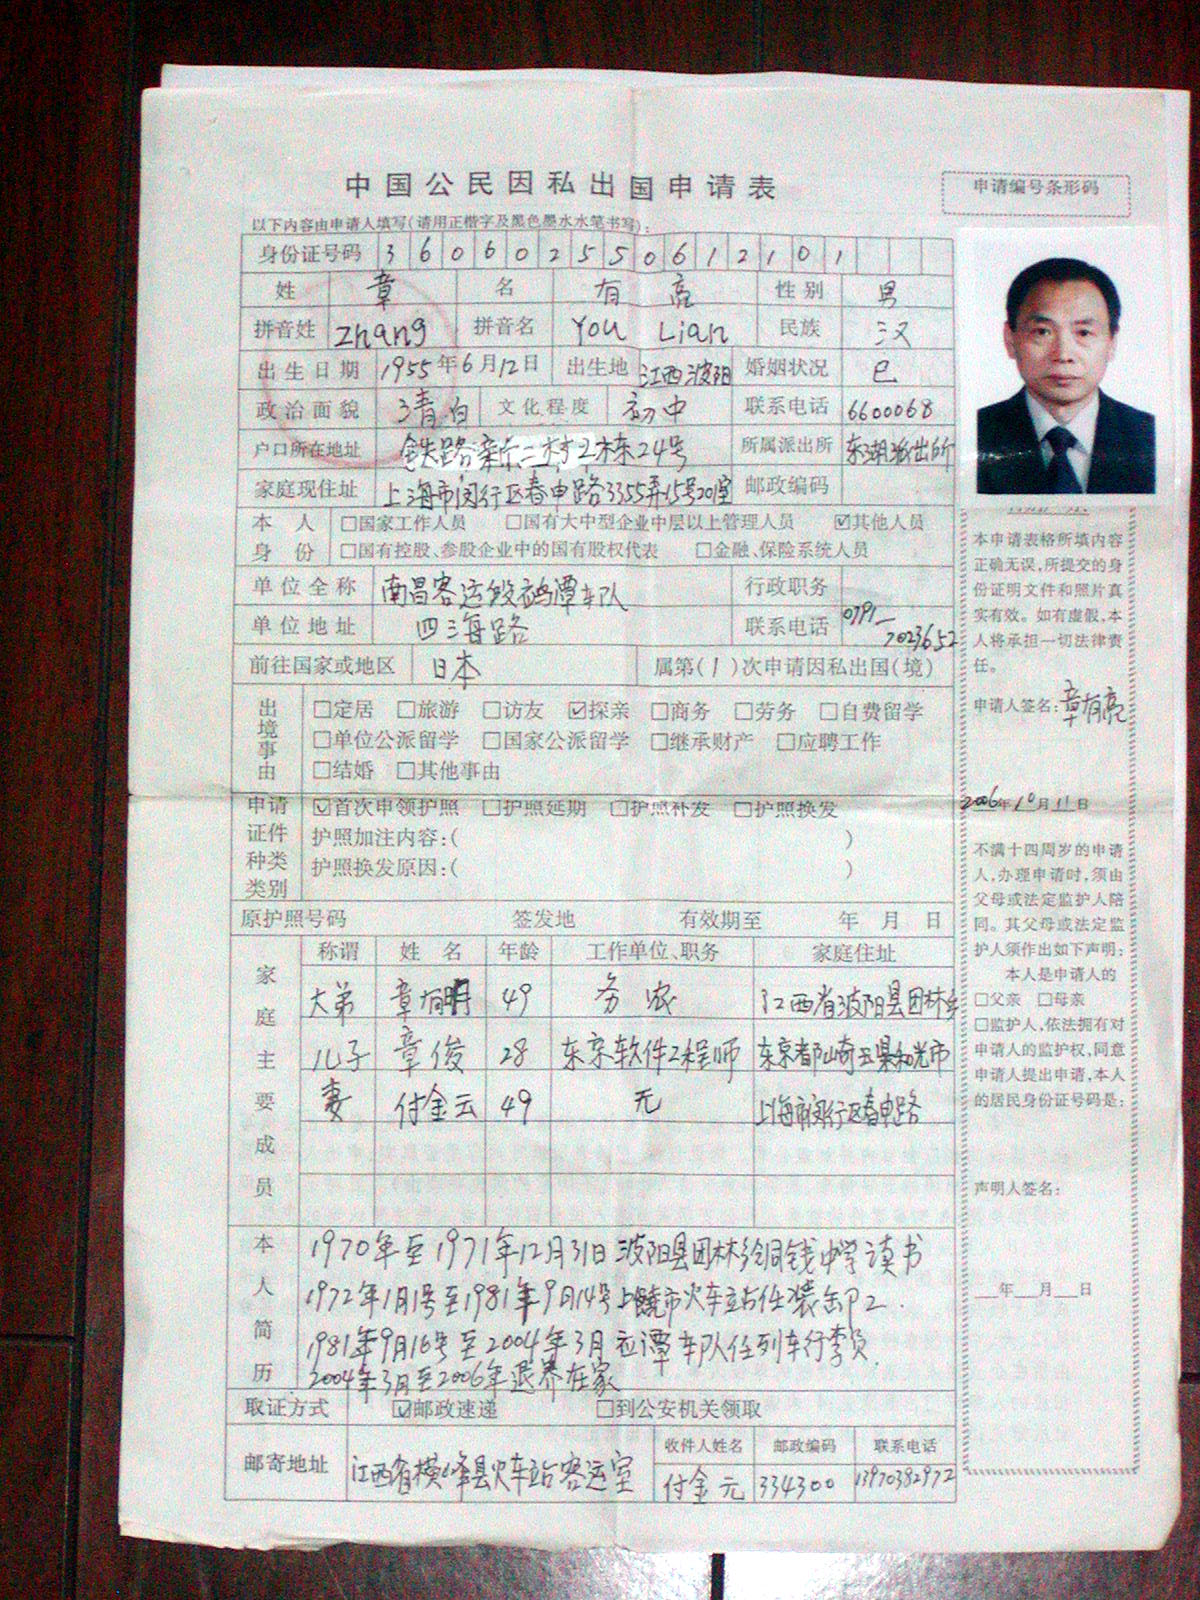 中国公民因私出国申请表
申请编号条形码
以下内容由申请人填写(请用正楷字及黑色墨水水笔书写):
身份证号码 360602550612101
姓 章 名 有亮 性别 男
拼音姓 Zhang 拼音名 You Lian 民族 汉
出生日期 1955年6月12日 出生地 江西波阳 婚姻状况 已
政治面貌 清白 文化程度 初中 联系电话 6600068
户口所在地址 铁路新三村2栋24号 所属派出所 东湖派出所
家庭现住址 上海市闵行区春申路3355弄15号201室 邮政编码
本人身份 □国家工作人员 □国有大中型企业中层以上管理人员 ☑其他人员
□国有控股、参股企业中的国有股权代表 □金融、保险系统人员
单位全称 南昌客运段鹰潭车队 行政职务
单位地址 四海路 联系电话 0791-7023652
前往国家或地区 日本 属第(1)次申请因私出国(境)
出境事由 □定居 □旅游 □访友 ☑探亲 □商务 □劳务 □自费留学
□单位公派留学 □国家公派留学 □继承财产 □应聘工作
□结婚 □其他事由
申请证件种类类别 ☑首次申领护照 □护照延期 □护照补发 □护照换发
护照加注内容:( )
护照换发原因:( )
原护照号码 签发地 有效期至 年 月 日
家庭主要成员 称谓 姓名 年龄 工作单位、职务 家庭住址
大弟 章有明 49 务农 江西省波阳县团林乡
儿子 章俊 28 东京软件工程师 东京都 崎玉县和光市
妻 付金云 49 无 上海市闵行区春申路
本人简历
1970年至1971年12月31日 波阳县团林 铜钱中学读书
1972年1月1号至1981年9月14号 上饶市火车站任装卸工.
1981年9月16号至2004年3月 应潭车队任列车行李员.
2004年3月至2006年退养在家
取证方式 ☑邮政速递 □到公安机关领取
邮寄地址 江西省横峰县火车站客运室 收件人姓名 邮政编码 联系电话
付金元 334300 13970382972
本申请表格所填内容
正确无误,所提交的身
份证明文件和照片真
实有效。如有虚假,本
人将承担一切法律责
任。
申请人签名:章有亮
2006年10月11日
不满十四周岁的申请
人,办理申请时,须由
父母或法定监护人陪
同。其父母或法定监
护人须作出如下声明:
本人是申请人的
□父亲 □母亲
□监护人,依法拥有对
申请人的监护权,同意
申请人提出申请,本人
的居民身份证号码是:
声明人签名:
年 月 日